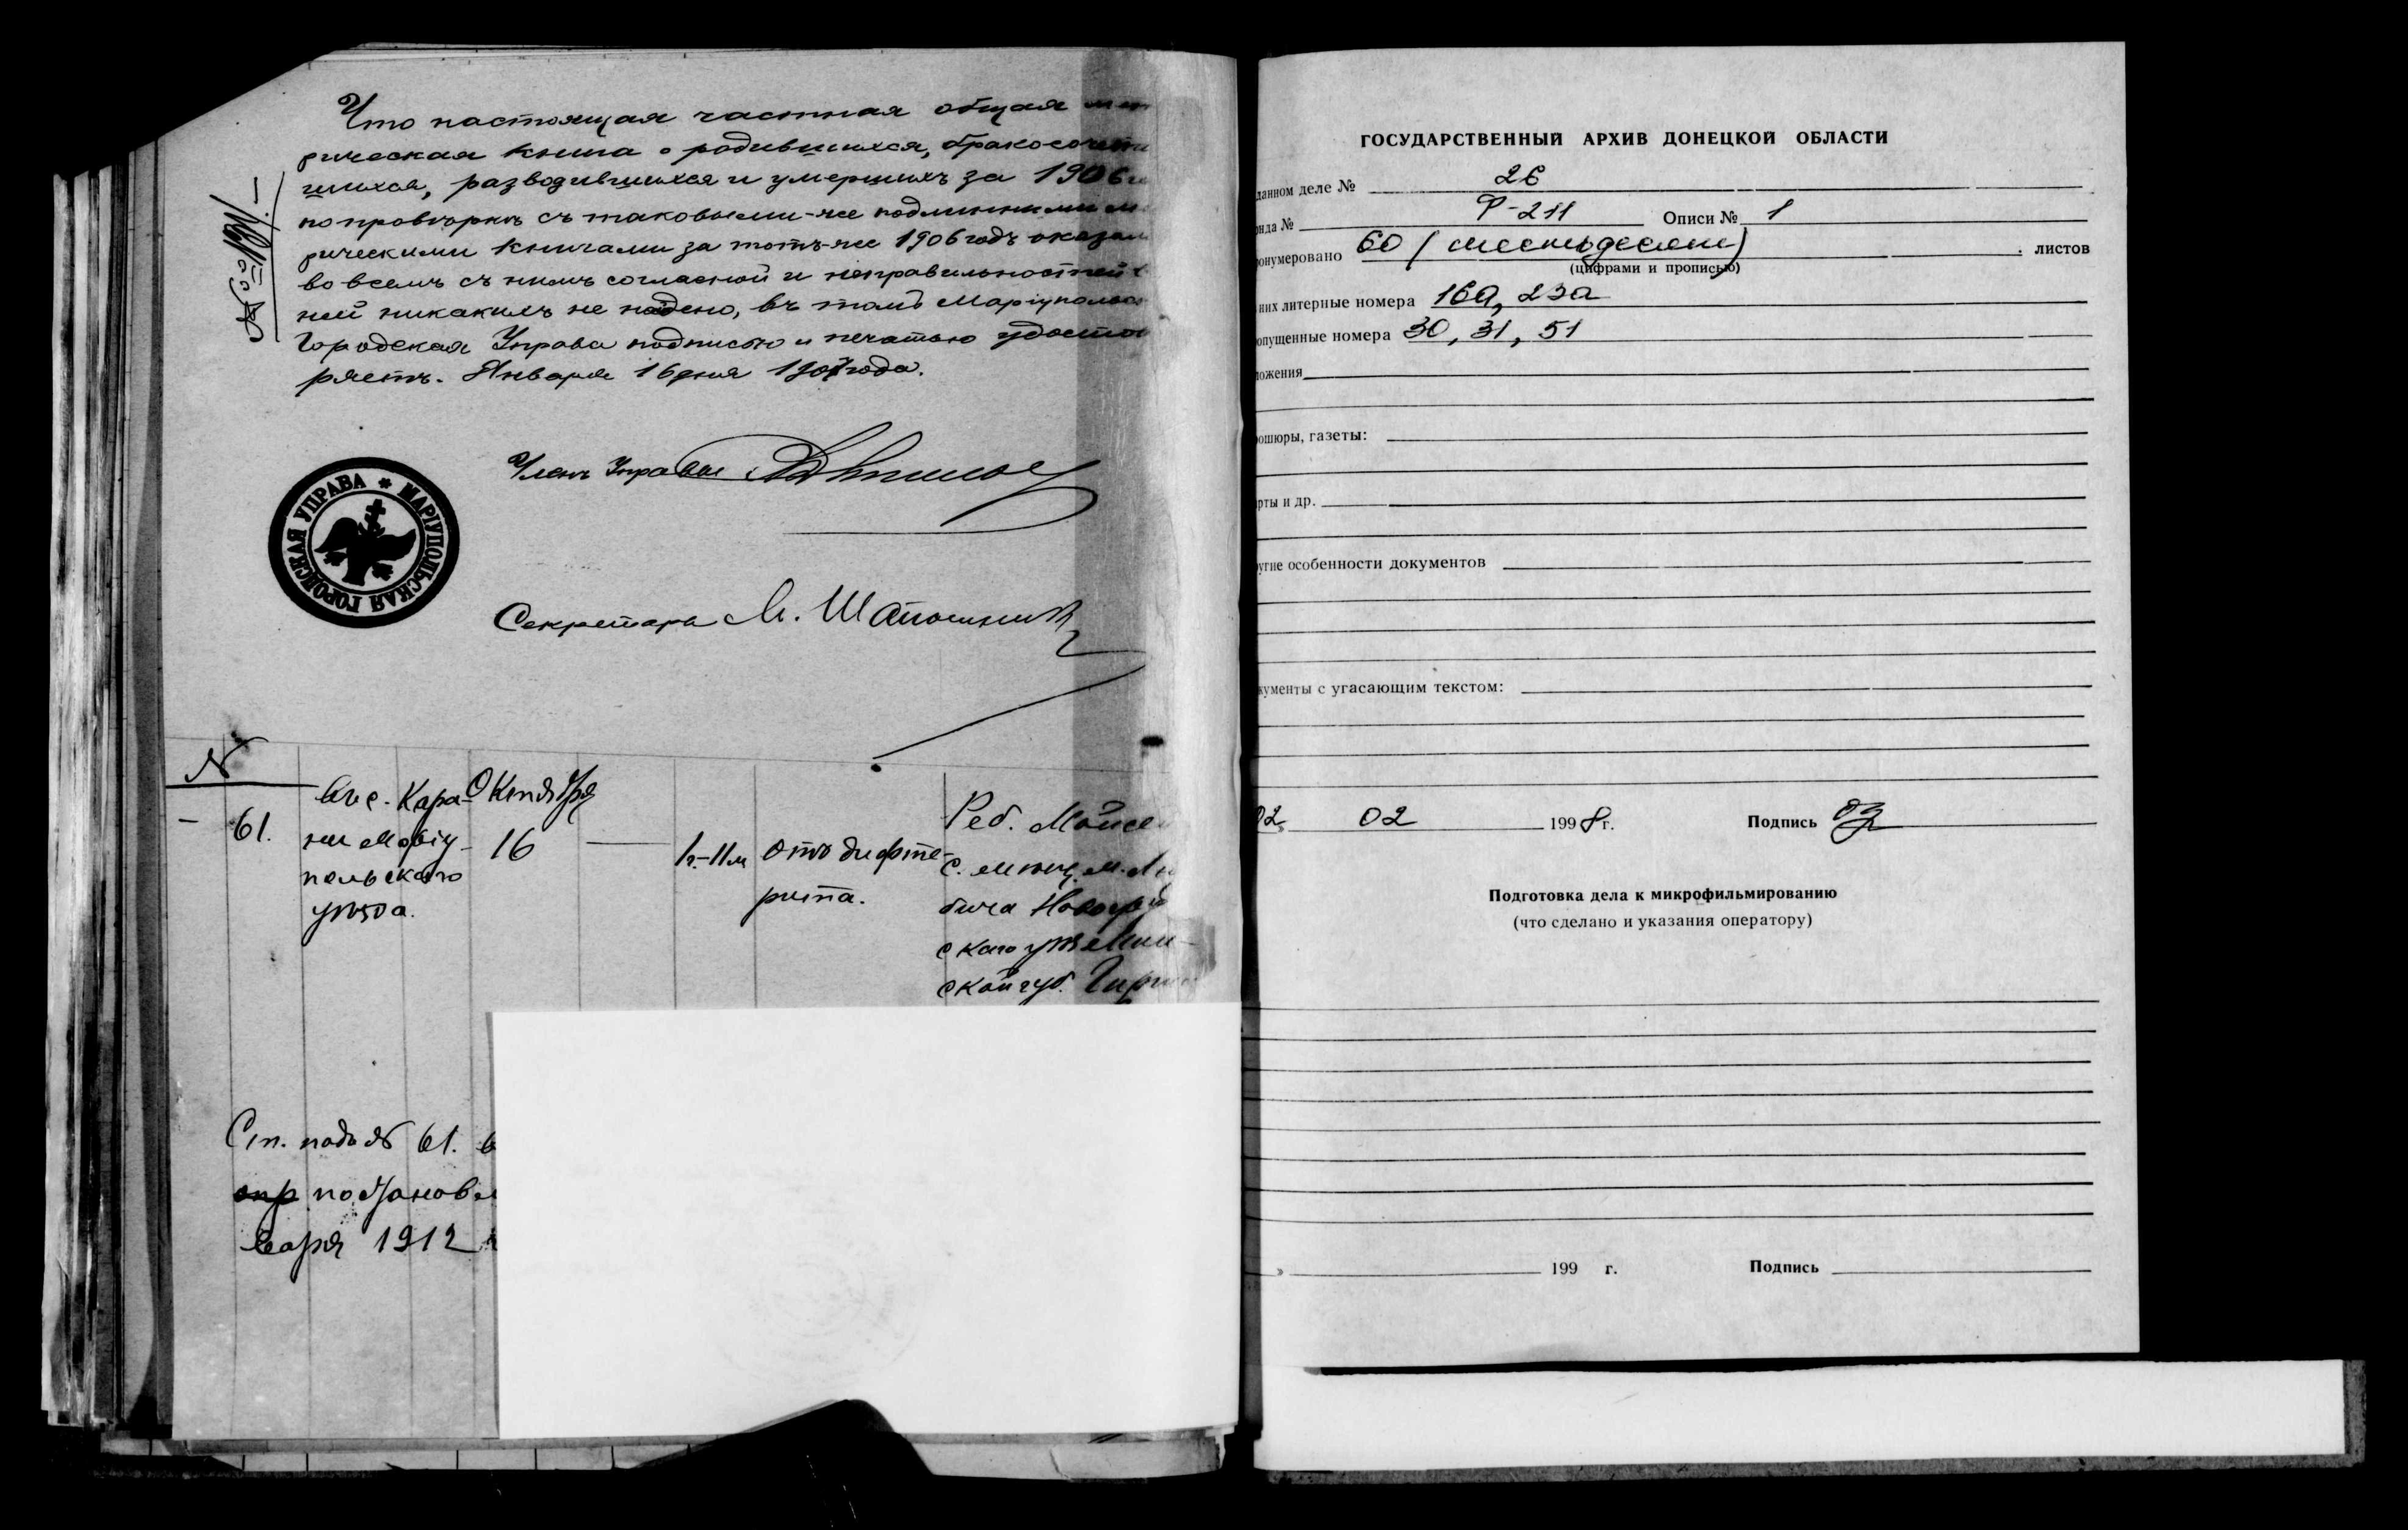 Что настоящая частная общая мет
рическая книга о родившихся, бракосочета
шихся, разводившихся и умершихъ за 1906 г
по провѣркѣ съ таковыми-же подлинными м
рическими книгами за тотъ-же 1906 годъ оказал
во всемъ съ нимъ согласной и неправильностей
ней никакихъ не найдено, въ томъ Маріупольск
Городская Управа подписью и печатью удостов
ряетъ. Января 16 дня 1907 года.
Членъ Управы
МАРІУПОЛЬСКАЯ ГОРОДСКАЯ УПРАВА
Секретарь М. Шапошник
№
61.
Въ с. Кара-
ни Маріу-
польскаго
уѣзда.
Октября
16
1г.-11м
отъ дифте-
рита.
Реб. Мойсе
с. мѣщ. м. Лю
бича Новогруд
скаго уѣз. Мин-
ской губ. Гирш
Ст. подъ № 61. в
опр постановл
варя 1912
ГОСУДАРСТВЕННЫЙ АРХИВ ДОНЕЦКОЙ ОБЛАСТИ
данном деле № 26
онда № Ф-211 Описи № 1
онумеровано 60 (шестьдесят) листов
(цифрами и прописью)
них литерные номера 16а, 23а
опущенные номера 30, 31, 51
ложения
рошюры, газеты:
рты и др.
угие особенности документов
кументы с угасающим текстом:
02 02 1998 г. Подпись
Подготовка дела к микрофильмированию
(что сделано и указания оператору)
199 г. Подпись